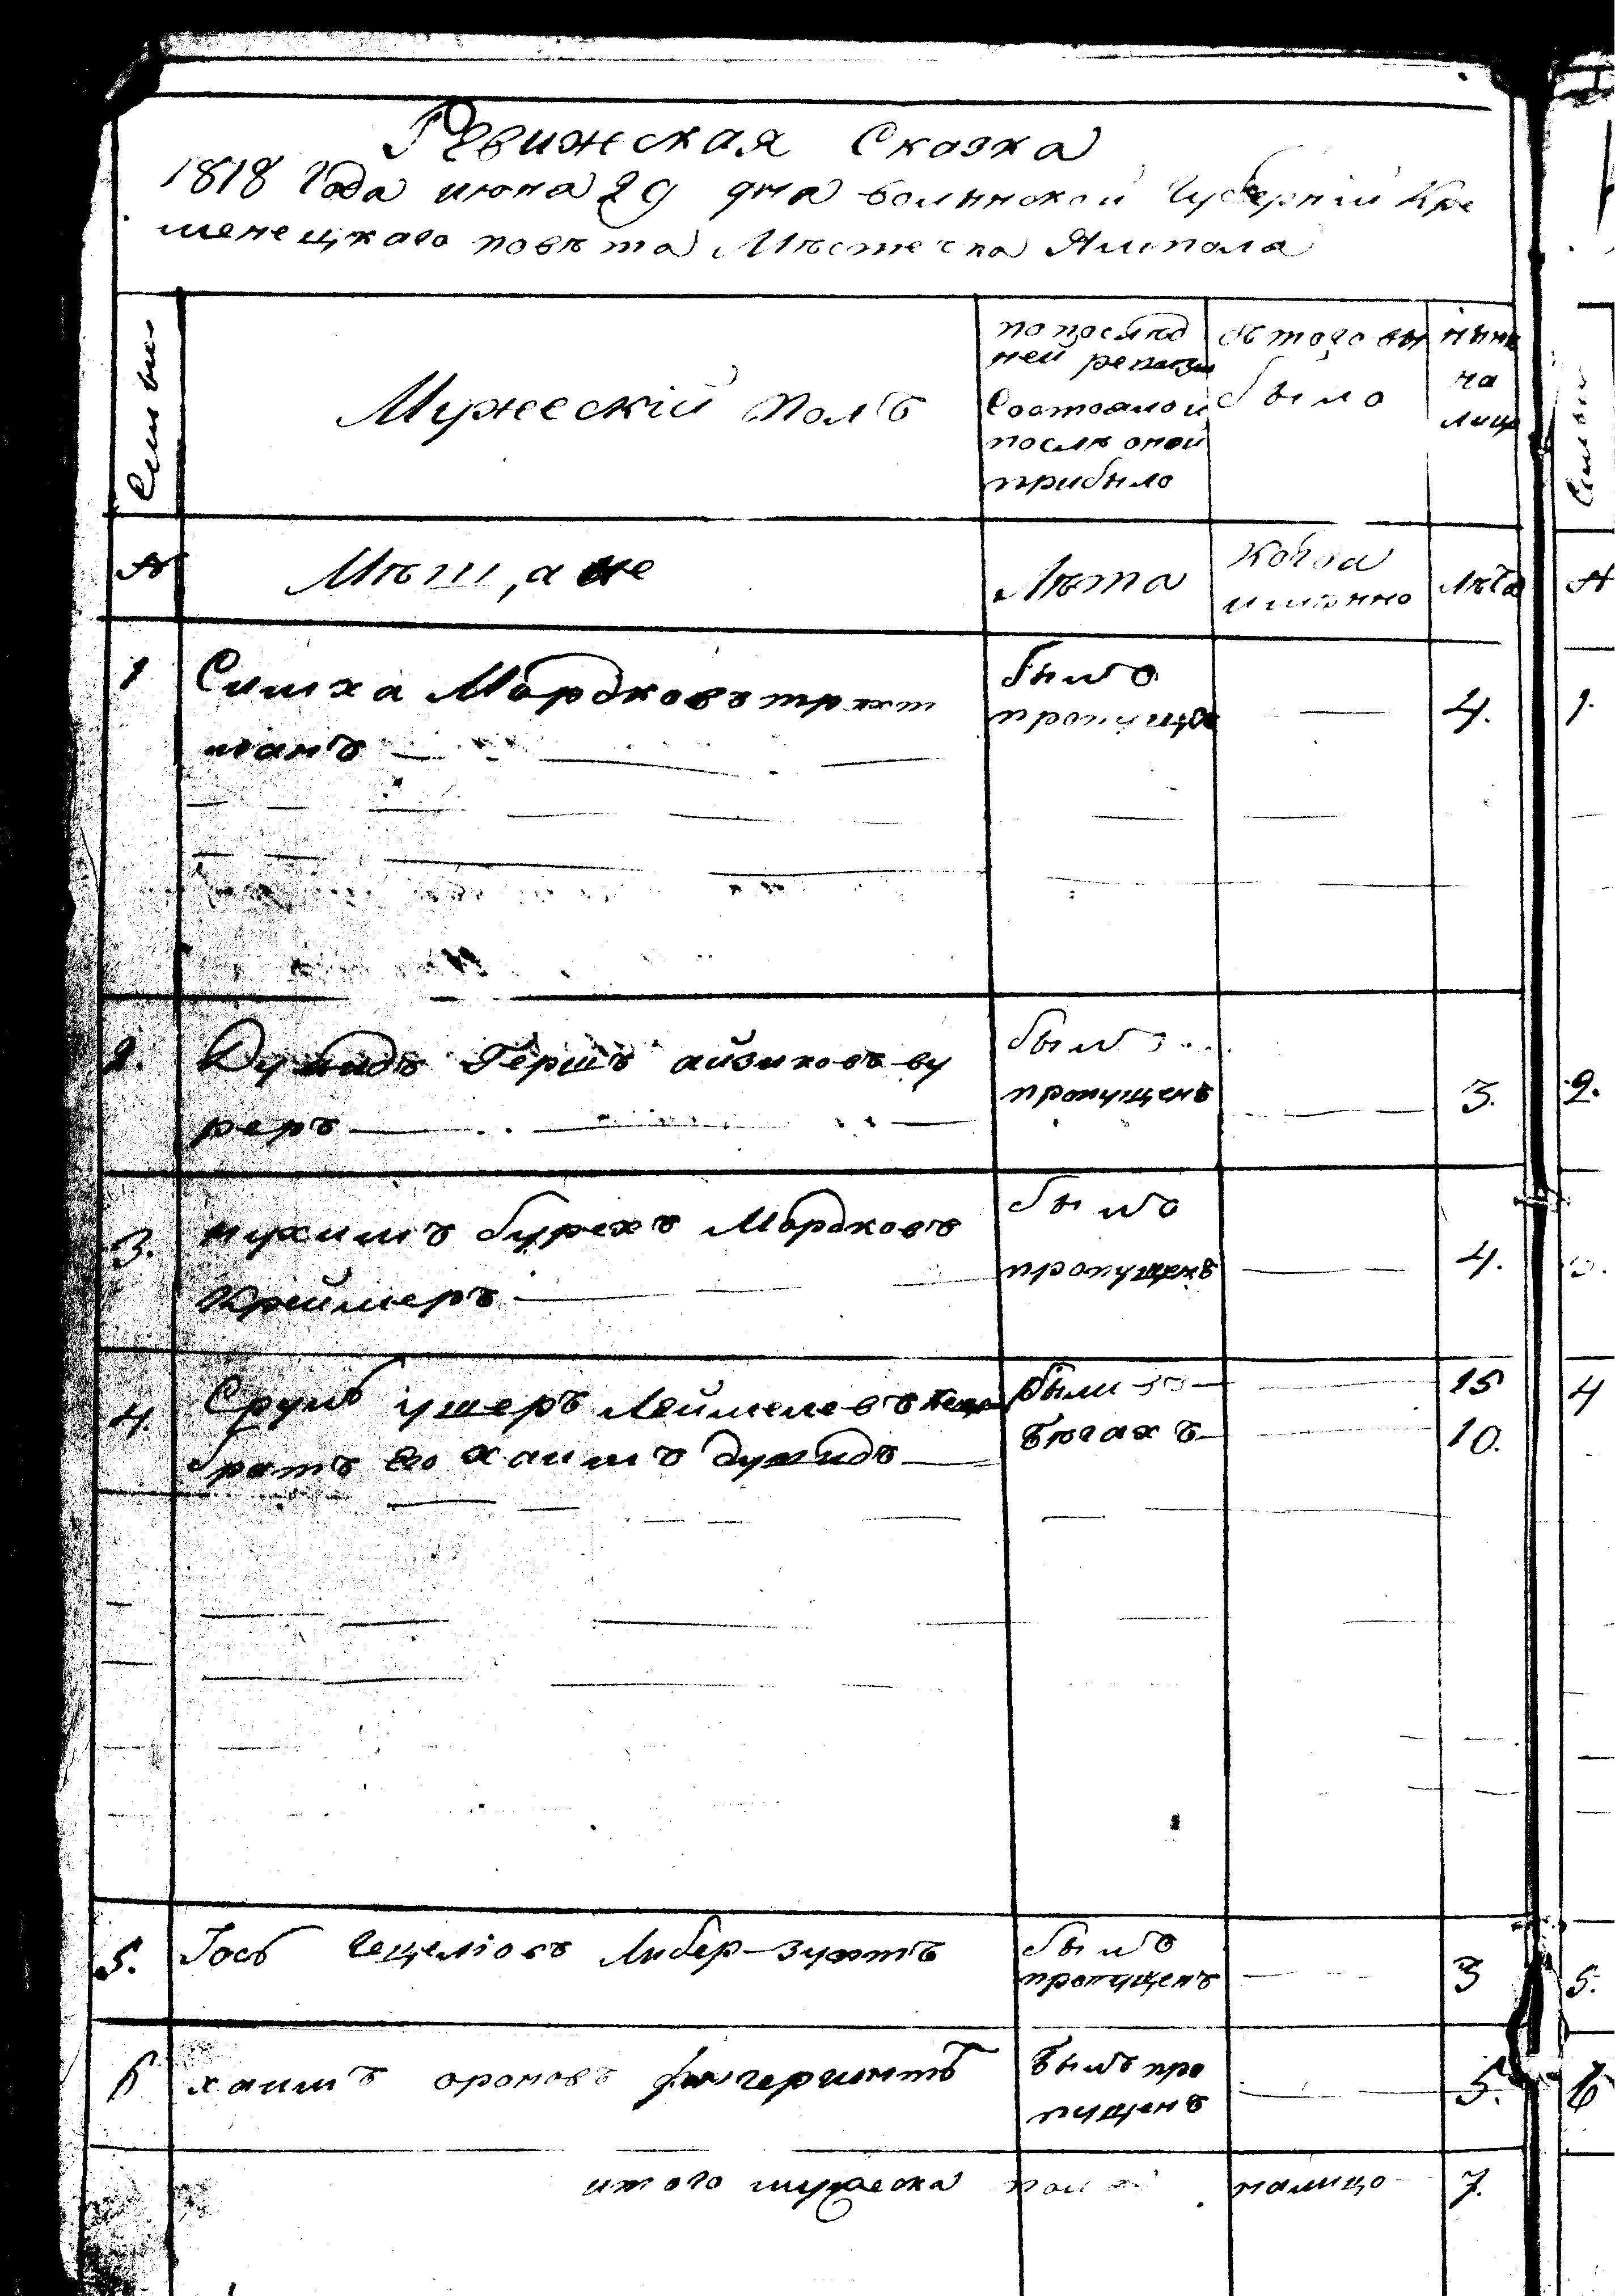 Ревижская Сказка
1818 Года июня 29 дня волынской Губернiи Кре
менецкаго повѣта Мѣстечка Ямпола
Семьи
Мужескiй полъ
по послѣд
ней ревизи
Состояло и
послѣ оной
прибыло
изъ того вы
было
нынѣ
на
лицо
№
Мѣщане
Лѣта
Когда
имянно
Лѣта
1
Симха Мордковъ
манъ
былъ
пропущенъ
4.
1.
2.
Дувидъ Гершъ айзиковъ ву
реръ
былъ
пропущенъ
3.
2.
3.
нухимъ бурехъ Мордковъ
Креймеръ
былъ
пропущенъ
4.
4.
Срулъ ушеръ Леймелевъ
братъ его хаимъ дувидъ
были
бѣгахъ
15
10.
4
5.
Iось Гецелiовъ Либер-зунтъ
былъ
пропущенъ
3
5.
6
хаимъ ороновъ фингергиштъ
былъ про
пущенъ
5.
6
итого мужеска пола налицо 7.